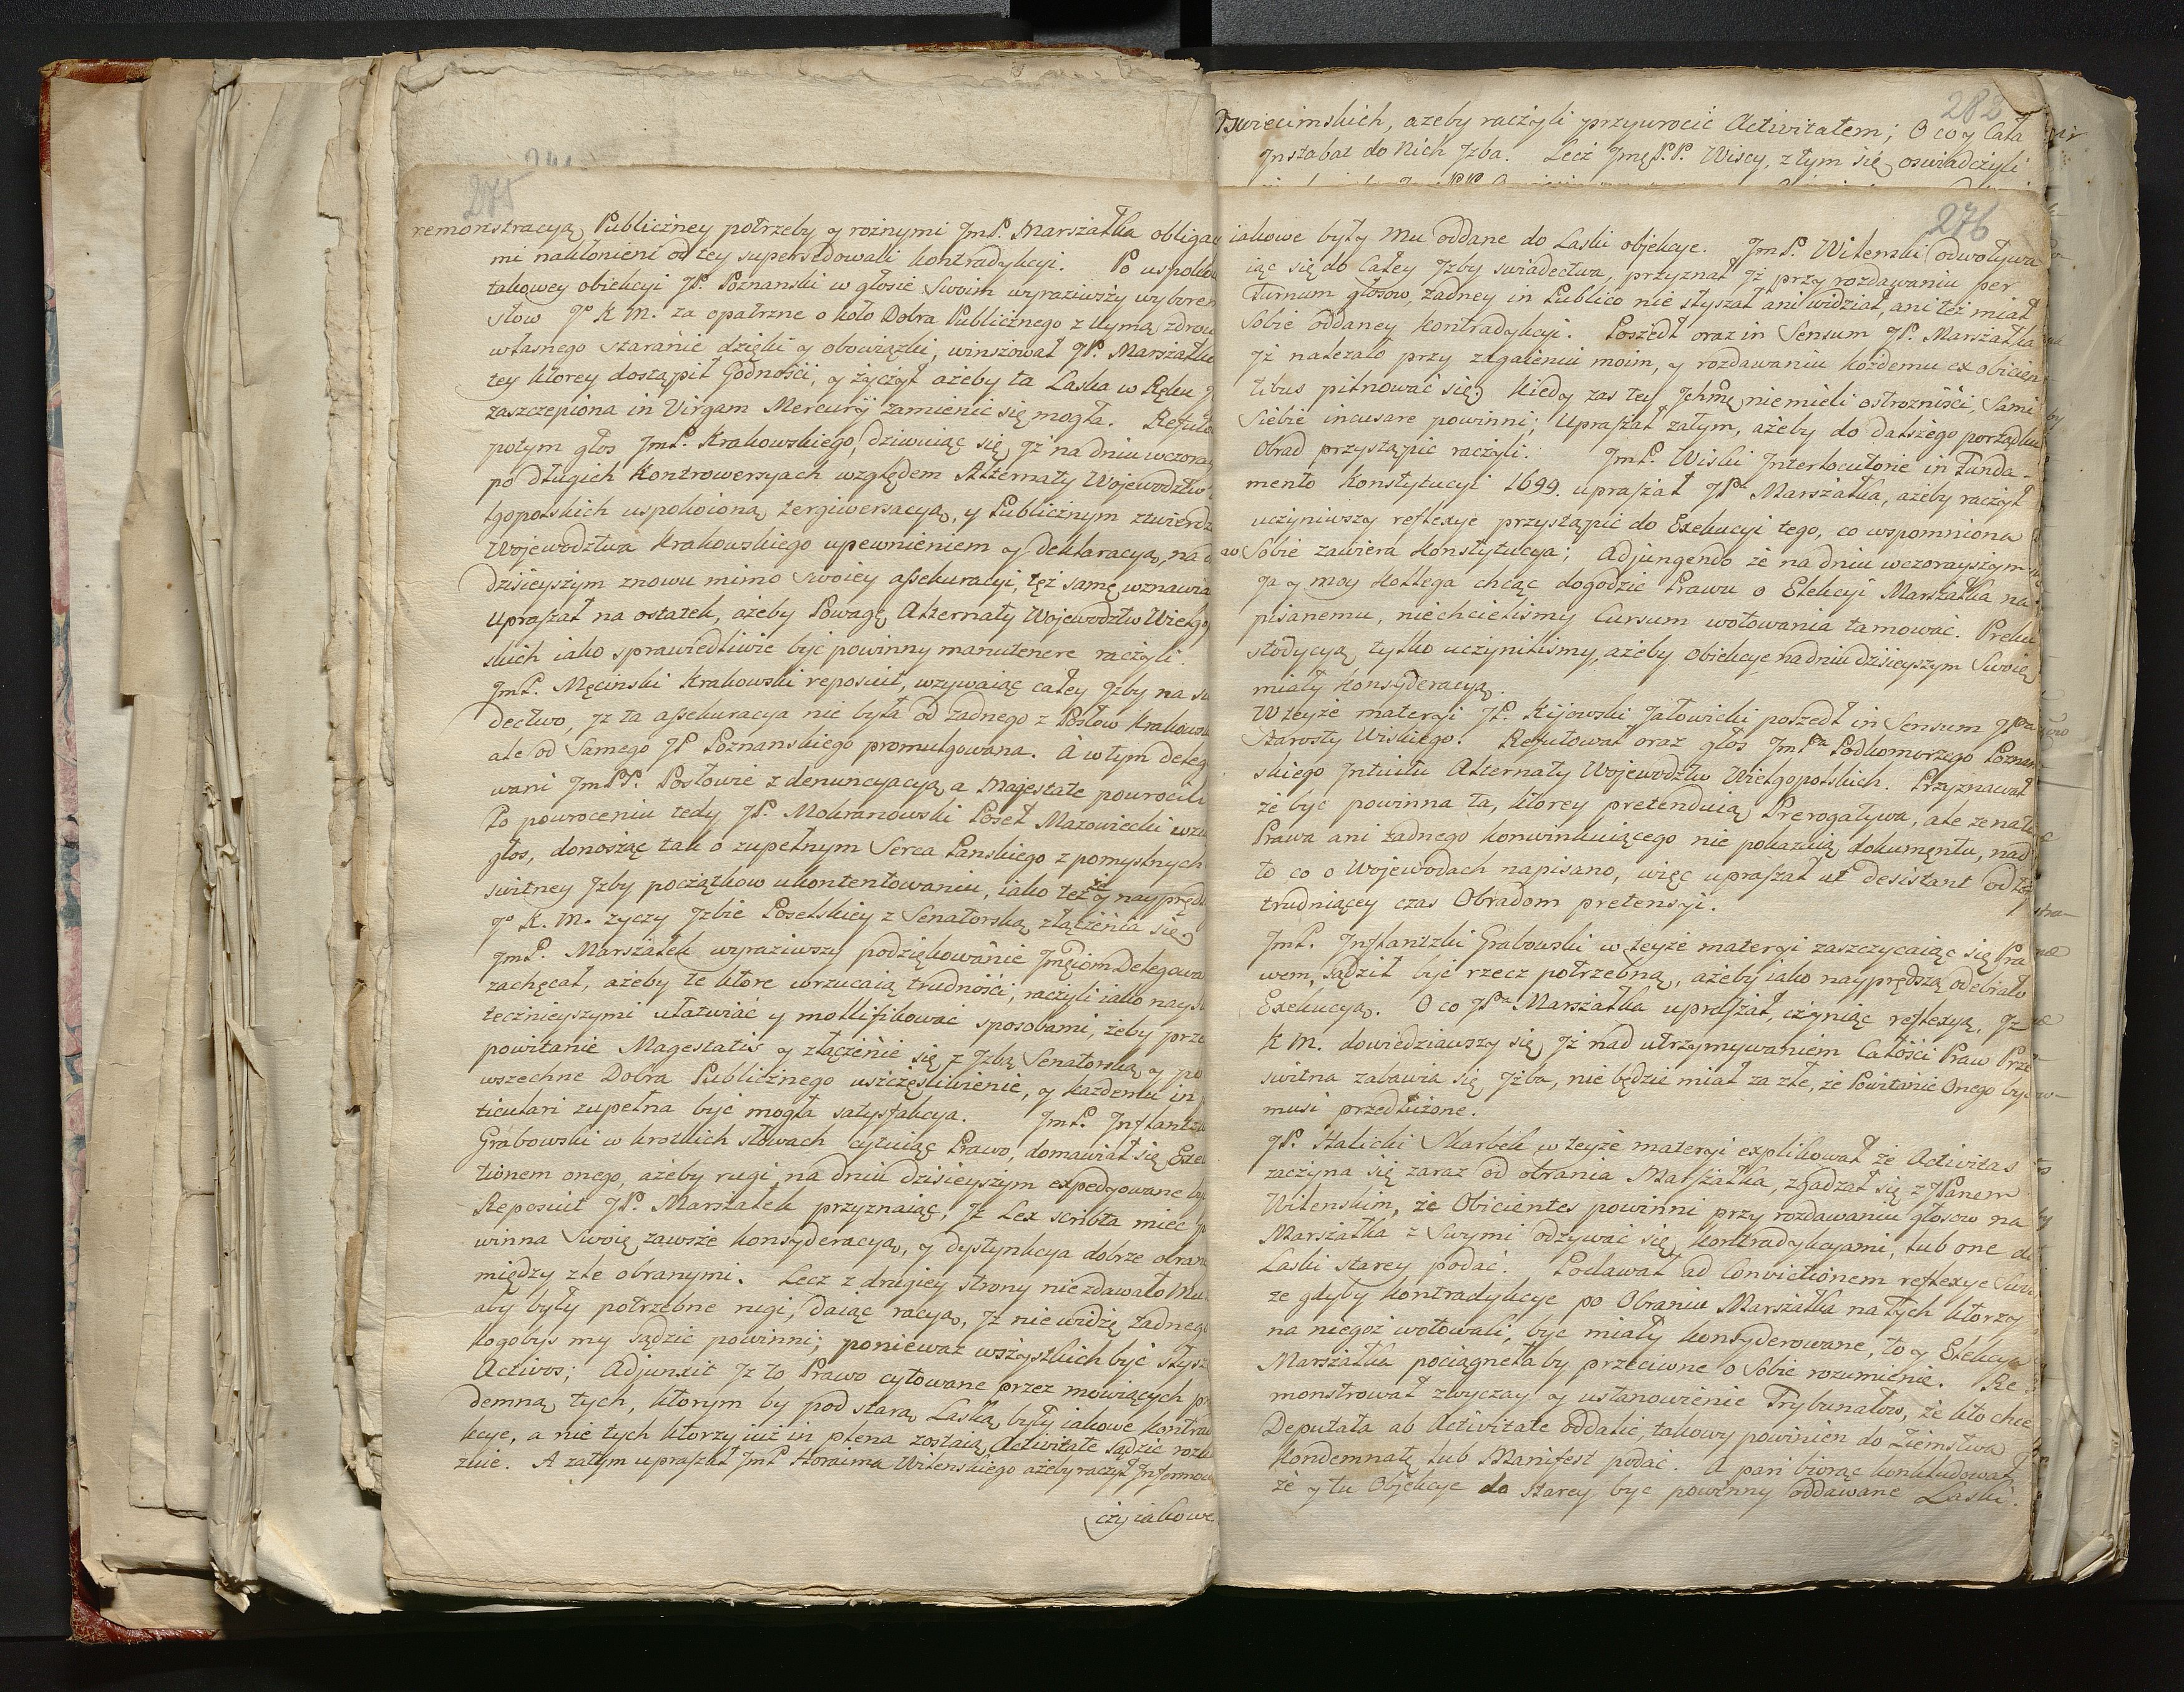 275
remonstracyą Publiczney potrzeby y rożnymi JmP. Marszałka obligac
mi nakłonieni od tey supersedowali kontradykcyi. Po uspoko
takowey obiekcyi JP. Poznanski w głosie Swoim wyraziwszy wyborem
słow Jo K M. za opatrzne o koło Dobra Publicznego z Uymą zdrow
własnego staranie dzięki y obowiązki, winszował JP. Marszałko
tey ktorey dostąpił Godności, y życzył ażeby ta Laska w Ręku J
zaszczepiona in Virgam Mercurij zamienic się mogła. Refuto
potym głos JmP. Krakowskiego, dziwuiąc się, Jż na dniu wczoray
po długich Kontrowersyach względem Alternaty Wojewodztw
lgopolskich uspokoioną tergiwersacyą, y Publicznym ztwierdz
Wojewodztwa Krakowskiego upewnieniem y deklaracyą, na d
dzisieyszym znowu mimo Swoiey assekuracyi, tęż samę wznawia
Upraszał na ostatek, ażeby Powagę Alternaty Wojewodztw Wielgo
skich iako sprawiedliwie być powinny manutenere raczyli.
JmP. Męcinski Krakowski reposuit, wzywaiąc całey Jzby na su
dectwo, Jż ta assekuracya nie była od żadnego z Posłow Krakowsk
ale od Samego JP Poznanskiego promulgowana. A w tym deleg
wani JmPP. Posłowie z denuncyacyą a Majestate powrocili
Po powroceniu tedy JP. Mokranowski Poseł Mazowiecki wzi
głos, donosząc tak o zupełnym Serca Panskiego z pomyslnych
switney Jzby początkow ukontentowaniu, iako też że y nayprędz
Jo K. M. zyczy Jzbie Poselskiey z Senatorską złączenia się.
JmP. Marszałek wyraziwszy podziękowanie Jmęiom Delegowa
zachęcał, ażeby te ktore wrzucaią trudności, raczyli iako naysk
tecznieyszymi ułatwiać y mollifikować sposobami, żeby prze
powitanie Magestatis y złączenie się z Jzbą Senatorską, y po
wszechne Dobra Publicznego uszczęśliwienie, y każdemu in p
ticulari zupełna być mogła satysfakcya. JmP. Jnflantzki
Grabowski w krotkich słowach cytuiąc Prawo, domawiał się Exe
tionem onego, ażeby rugi na dniu dzisieyszym expedyowane by
Reposuit JP. Marszałek przyznaiąc, Jż Lex scripta miec po
winna Swoię zawsze konsyderacyą, y dystynkcya dobrze obran
między zle obranymi. Lecz z drugiey strony nie zdawało Mu
aby były potrzebne rugi, daiąc racyą, Jż nie widzę żadnego
kogobyś my sądzic powinni; ponieważ wszystkich być słysz
Activos; Adjunxit Jż to Prawo cytowane przez mowiących pr
demną tych, ktorym by pod starą Laską były iakowe kontrad
kcye, a nie tych ktorzy iuż in plena zostaią Activitate sądzic rozka
zuie. A zatym upraszał JmP Horaima Wilenskiego ażeby raczył Jnformow
czy iakowe
282
Oswiecimskich, ażeby raczyli przywrocić Activitatem; O co y Cała
Jnstabat do Nich Jzba. Lecż JmęPP. Wiscy, z tym się oswiadczyli
276
iakowe były Mu oddane do Laski objekcye. JmP. Wilenski odwoływa
iąc się do Całey Jzby swiadectwa, przyznał Jż przy rozdawaniu per
Turnum głosow, żadney in Publico nie słyszał ani widział, ani też miał
Sobie oddaney Kontradykcyi. Poszedł oraz in Sensum JP. Marszałka
Jż należało przy zagaieniu moim, y rozdawaniu każdemu ex obicien
tibus pilnować się; kiedy zas tey Jchmę niemieli ostrozności, Sami
Siebie incusare powinni; Upraszał zatym, ażeby do dalszego porządku
Obrad przystąpic raczyli. JmP. Wiski Jnterlocutorie in Funda-
mento Konstytucyi 1699. upraszał JPa Marszałka, ażeby raczył
uczyniwszy reflexye przystąpic do Exekucyi tego, co wspomniona
w Sobie zawiera Konstytucya; Adjungendo że na dniu wczorayszym
Ja y moy Kollega chcąc dogodzic Prawu o Elekcyi Marszałka na
pisanemu, niechcieliśmy Cursum wotowania tamować. Preku
stodycyą tylko uczyniliśmy, ażeby Obiekcye na dniu dzisieyszym Swoię
miały Konsyderacyą.
W teyże materyi JP. Kijowski Jałowicki poszedł in Sensum JPa
Starosty Wiskiego. Refutował oraz głos JmPa Podkomorzego Poznan
skiego Jntuitu Alternaty Wojewodztw Wielgopolskich. Przyznawał
że byc powinna ta, ktorey pretenduią Prerogatywa, ale że na to
Prawa ani żadnego konwinkuiącego nie pokazuią dokumentu, nad
to co o Wojewodach napisano, więc upraszał ut desistant od tey
trudniącey czas Obradom pretensyi.
JmP. Jnflantzki Grabowski w teyże materyi zaszczycaiąc się Pra
wem, sądził być rzecz potrzebną, ażeby iako nayprędszą odebrało
Exekucyą. O co JPa Marszałka upraszał, czyniąc reflexyą, Jż
K M. dowiedziawszy się, Jż nad utrzymywaniem Całości Praw Prze
switna zabawia się Jzba, nie będzie miał za złe, że Powitanie Onego być
musi przedłużone.
JP. Halicki Skarbek w teyże materyi explikował że Activitas
zaczyna się zaraz od obrania Marszałka, zgadzał się z JPanem
Wilenskim, że Obicientes powinni przy rozdawaniu głosow na
Marszałka z Swymi odzywać się kontradykcyami, lub one do
Laski starey podać. Podawał ad Convictionem reflexye Swoie
ze gdyby kontradykcye po Obraniu Marszałka na tych ktorzy
na niegoż wotowali, byc miały konsyderowane, to y Elekcya
Marszałka pociągnęłaby przeciwne o Sobie rozumienie. Re
monstrował zwyczay y ustanowienie Trybunałow, że kto chce
Deputata ab Activitate oddalic, takowy powinien do Ziemstwa
Kondemnatę lub Manifest podać. A pari biorąc konkludował
że y tu Objekcye do starey byc powinny oddawane Laski.